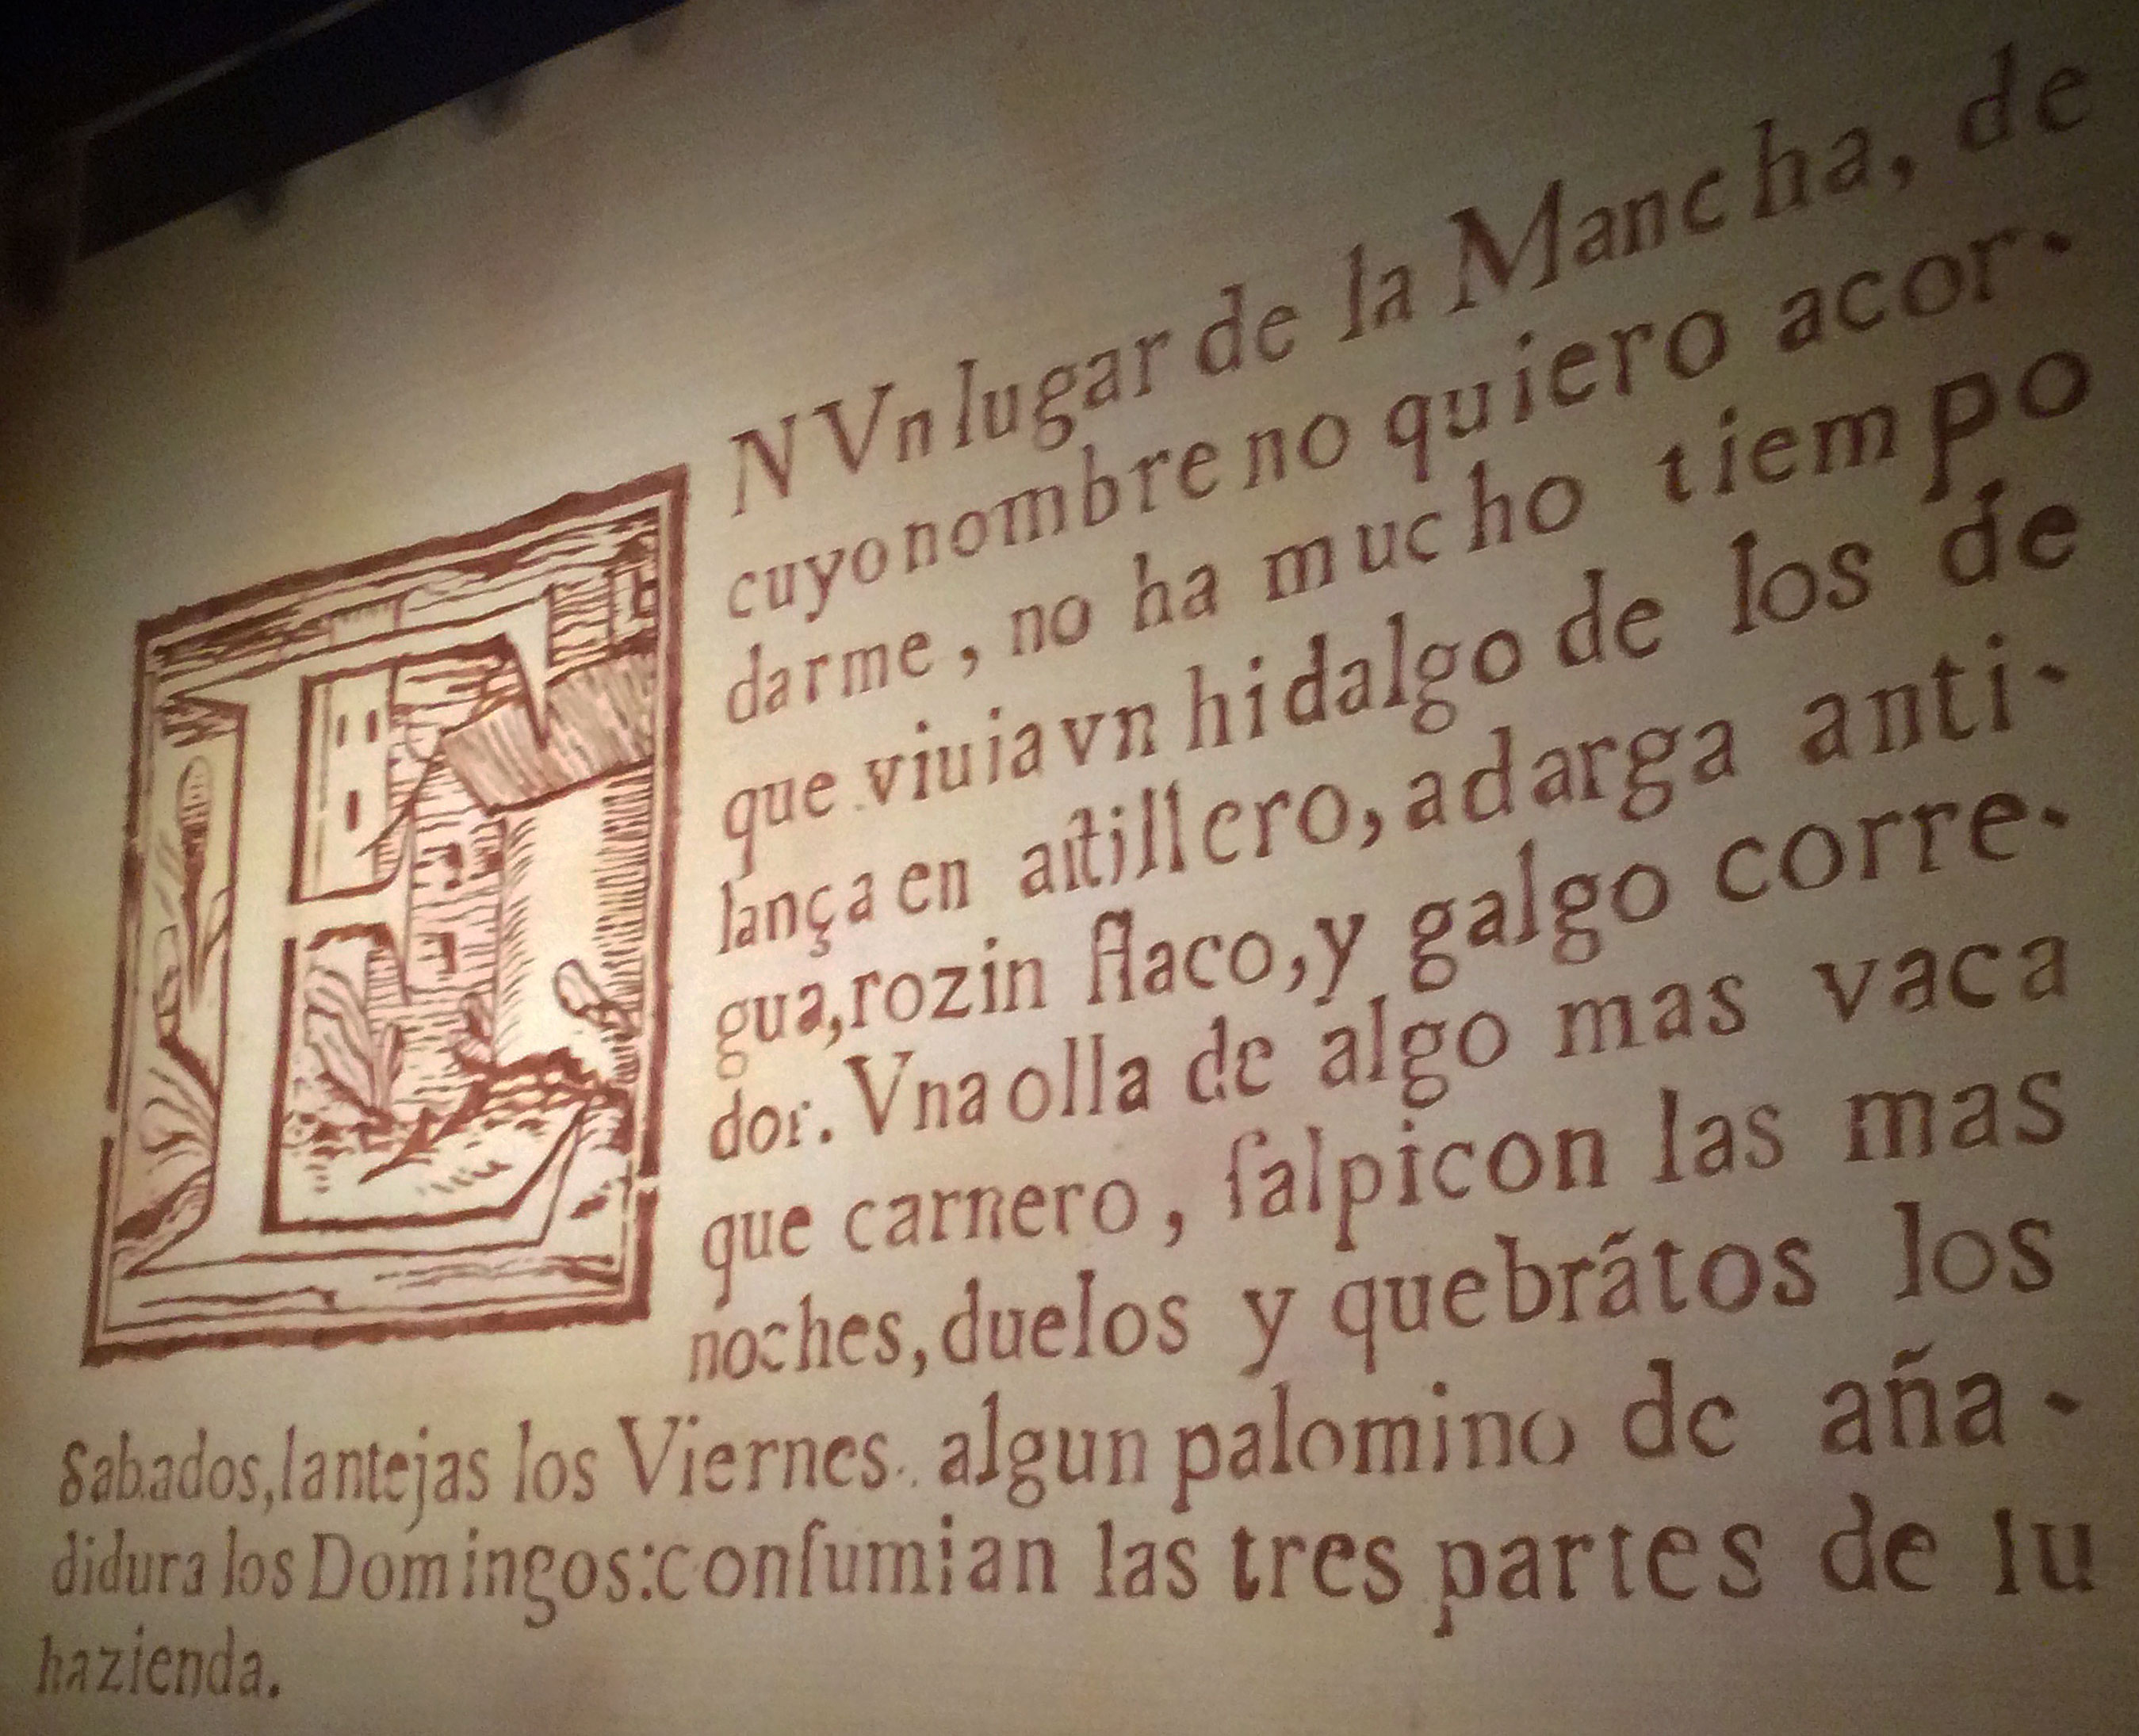 EN Vn lugar de la Mancha, de
cuyo nombre no quiero acor-
darme, no ha mucho tiempo
que viuia vn hidalgo de los de
lança en aſtillero, adarga anti-
gua, rozin flaco, y galgo corre-
dor. Vna olla de algo mas vaca
que carnero, ſalpicon las mas
noches, duelos y quebrãtos los
Sabados, lantejas los Viernes. algun palomino de aña-
didura los Domingos: conſumian las tres partes de ſu
hazienda.